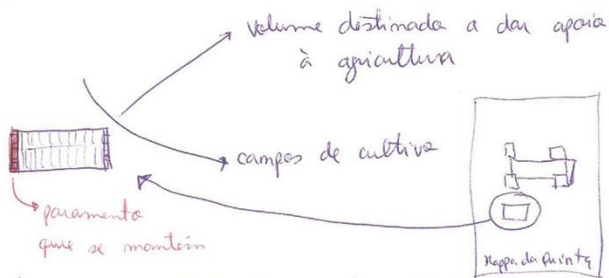 volume destinada a dar apoio
à agricultura
campos de cultivo
paramento
que se mantém
Mappa da Quinta